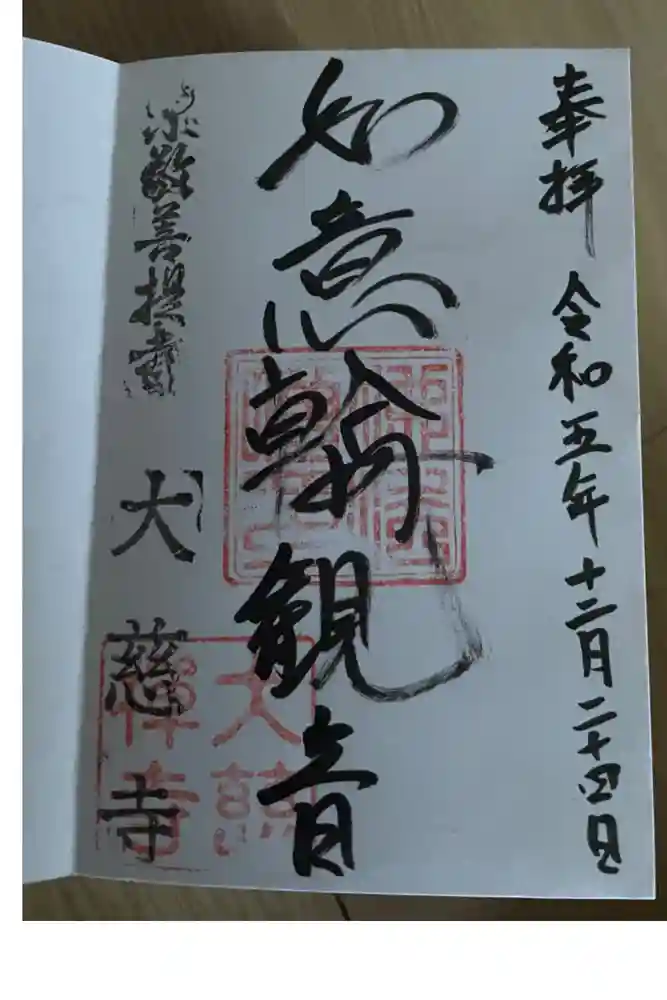 奉拝 令和五年十二月二十四日
如意輪観音
原敬菩提寺
大慈寺
大慈禪寺